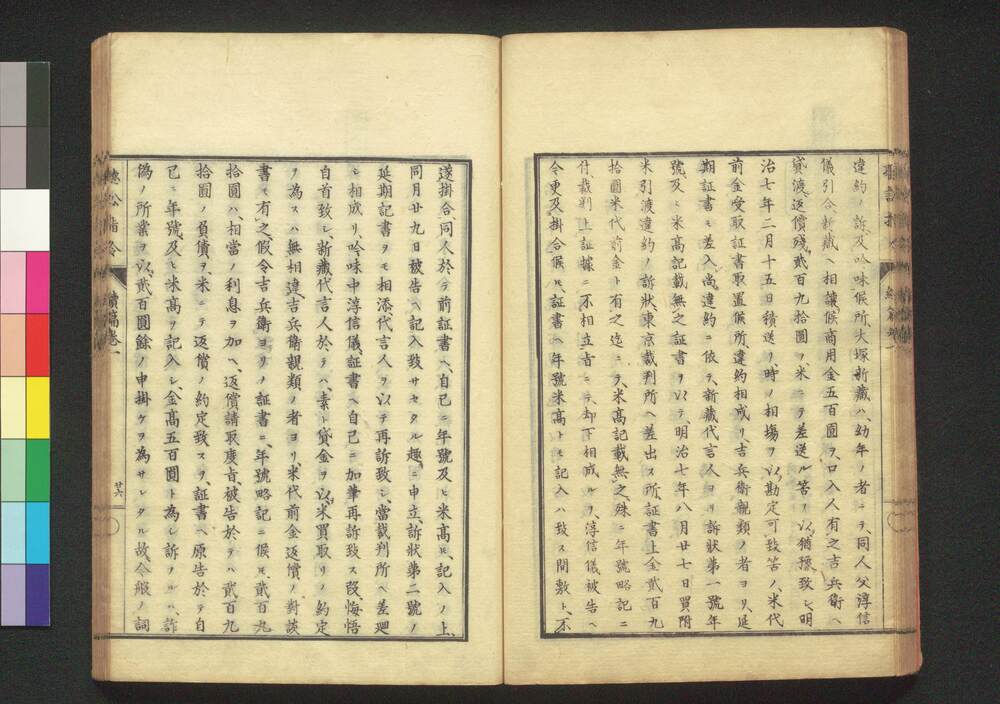 違約ノ訴及ヒ吟味候所、大塚新蔵ハ、幼年ノ者ニテ、同人父淳信
儀引合新蔵ヘ相譲候商用金五百圓ヲ、口入人有之吉兵衛ヘ
貸渡、返償残貳百九拾圓ノ米ニテ差送ル筈ヲ以、猶豫致シ、明
治七年二月十五日積送リ、時ノ相場ヲ以勘定可致筈ノ米代
前金受取証書取置候所、違約相成リ、吉兵衛親類ノ者ヨリ、延
期証書モ差入、尚違約ニ依テ、新蔵代言人ヨリ訴状第一號年
號及ヒ米高記載無之証書ヲ以テ、明治七年八月廿七日買附
米引渡違約ノ訴状東京裁判所ヘ差出ス所、証書上金貳百九
拾圓米代前金ト有之迄ニテ、米高記載無之、殊ニ年號略記ニ
付、裁判上証據ニ不相立旨ニテ、却下相成ルヲ、淳信儀被告ヘ
令更及掛合候ヘ𪜈、証書ヘ年號米高トモ記入ハ致ス間敷ト、不
遂掛合、同人於テ前証書ヘ、自己ニ年號及ヒ米高𪜈、記入ノ上、
同月廿九日被告ヘ記入致サセタル趣ニ申立、訴状第二號ノ
延期記書ヲモ相添、代言人ヲ以テ再訴致シ、當裁判所ヘ差廻
シ相成リ、吟味中淳信儀、証書ヘ自己ニ加筆再訴致ス段、悔悟
自首致シ、新蔵代言人於テハ、素ト貸金ヲ以、米買取リノ約定
ヲ為スハ無相違、吉兵衛親類ノ者ヨリ、米代前金返償ノ對談
書モ有之、假令吉兵衛ヨリノ証書ニ、年號略記ニ候𪜈、貳百九
拾圓ハ、相當ノ利息ヲ加ヘ、返償請取度旨、被告於テハ貳百九
拾圓ノ負債ヲ、米ニテ返償ノ約定致スヲ、証書ヘ原告於テ自
己ニ年號及ヒ米高ヲ記入シ、金高五百圓ト為シ訴ノルハ、詐
偽ノ所業ヲ以、貳百圓餘ノ申掛ケヲ為サレタル故、今般ノ詞
聴訟指令
續篇巻一
廿六